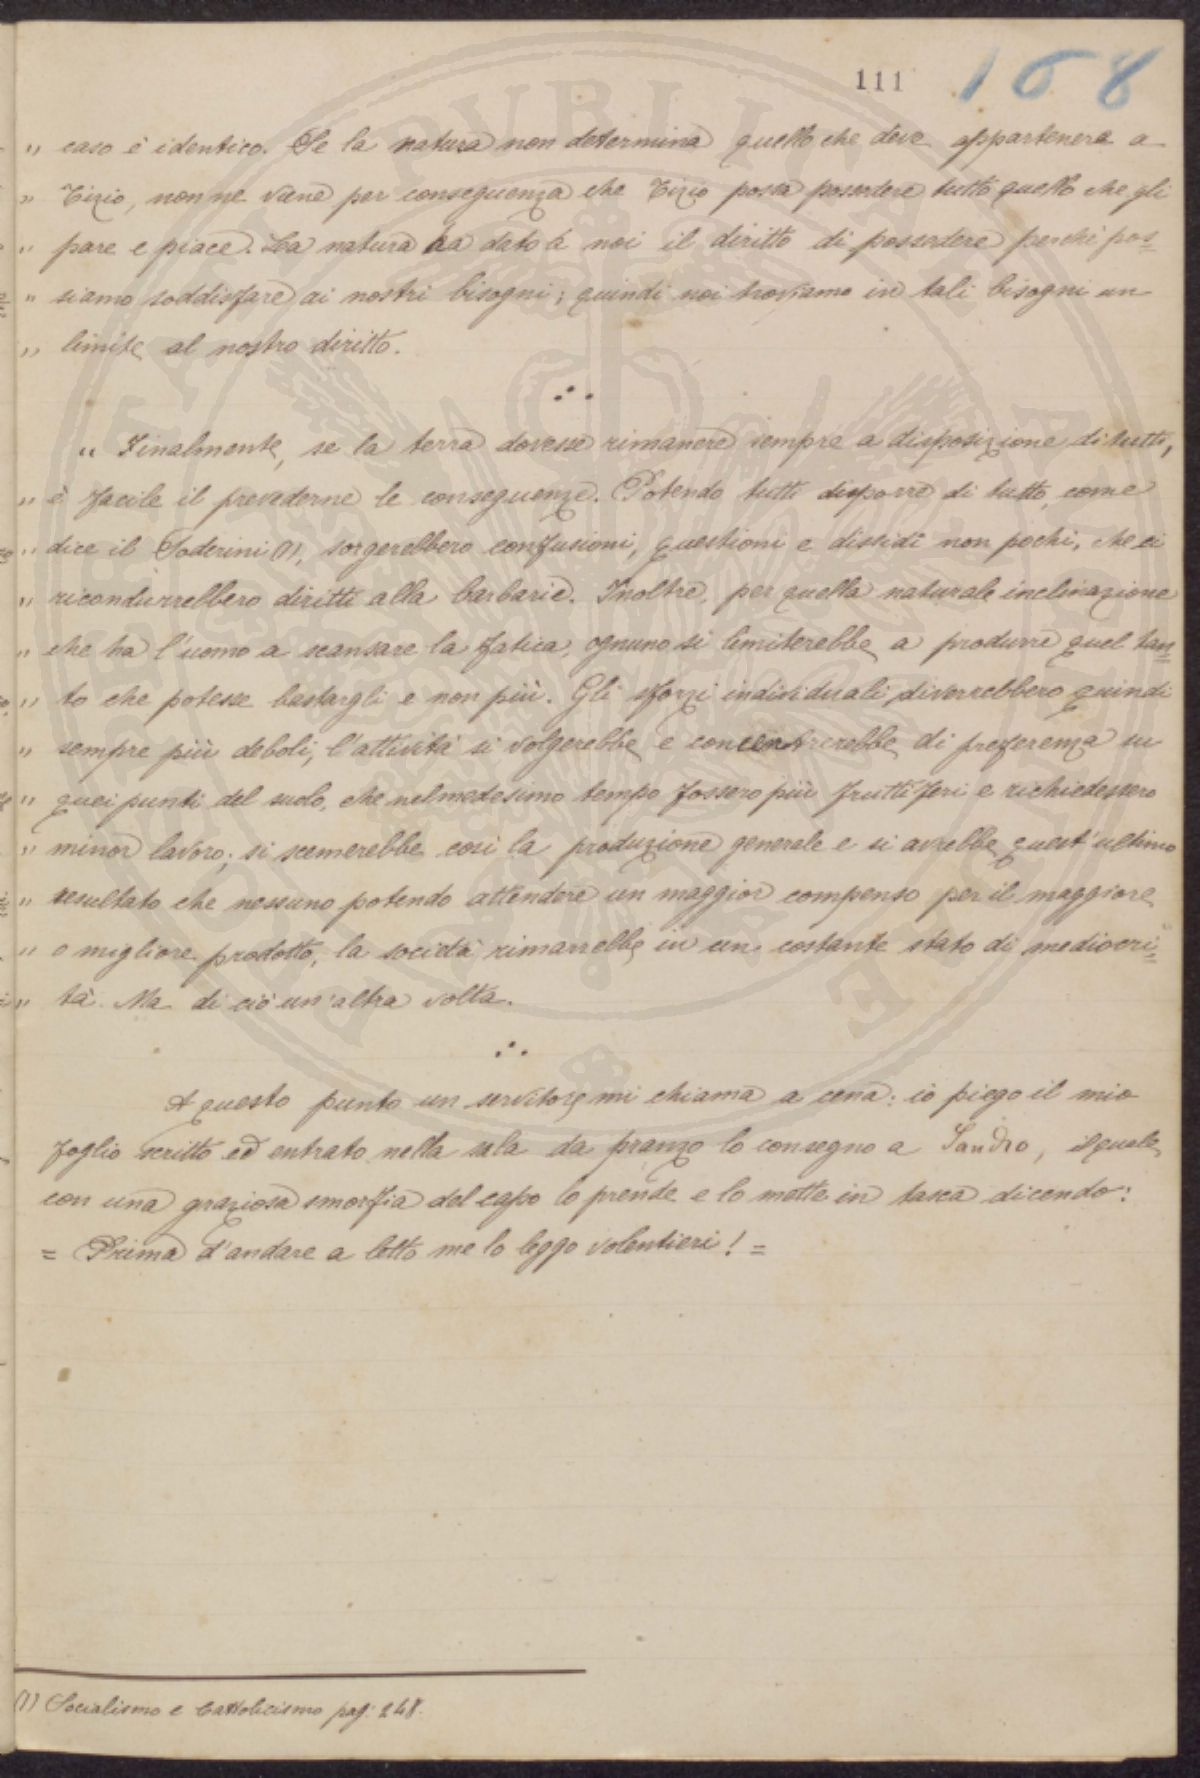 111 168
" caso è identico. Se la natura non determina quello che deve appartenere a
" Tizio, non ne viene per conseguenza che Tizio possa possedere tutto quello che gli
" pare e piace. La natura ha dato a noi il diritto di possedere perchè pos=
" siamo soddisfare ai nostri bisogni; quindi noi troviamo in tali bisogni un
" limite al nostro diritto.
∴
" Finalmente, se la terra dovesse rimanere sempre a disposizione di tutti,
" è facile il prevederne le conseguenze. Potendo tutti disporre di tutto, come
" dice il Soderini (1), sorgerebbero confusioni, questioni e dissidi non pochi, che ci
" ricondurrebbero diritti alla barbarie. Inoltre, per quella naturale inclinazione
" che ha l'uomo a scansare la fatica, ognuno si limiterebbe a produrre quel tan=
" to che potesse bastargli e non più. Gli sforzi individuali diverrebbero quindi
" sempre più deboli, l'attività si volgerebbe e concentrerebbe di preferenza su
" quei punti del suolo, che nel medesimo tempo fossero più fruttiferi e richiedessero
" minor lavoro; si scemerebbe così la produzione generale e si avrebbe quest'ultimo
" resultato che nessuno potendo attendere un maggior compenso per il maggiore
" o migliore prodotto, la società rimarrebbe in un costante stato di mediocri=
" tà. Ma di ciò un'altra volta.
∴
A questo punto un servitore mi chiama a cena: io piego il mio
foglio scritto ed entrato nella sala da pranzo lo consegno a Sandro, il quale
con una graziosa smorfia del capo lo prende e lo mette in tasca dicendo:
= Prima d'andare a letto me lo leggo volentieri! =
(1) Socialismo e Cattolicismo pag: 248.